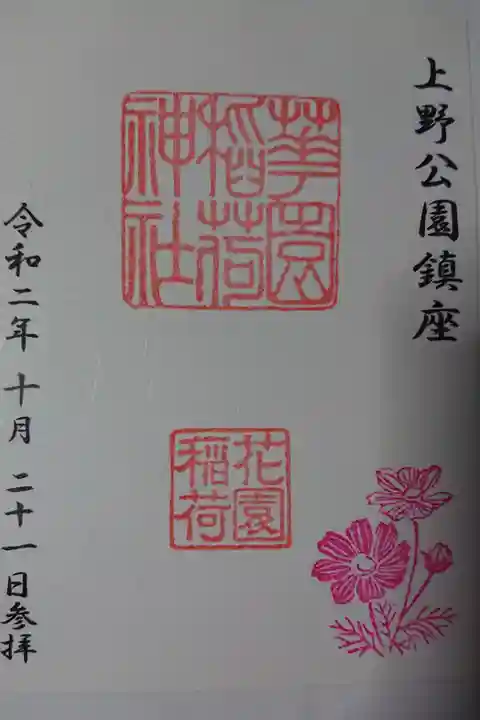 上野公園鎮座
華園
稲荷
神社
花園
稲荷
令和二年 十月 二十一日参拝